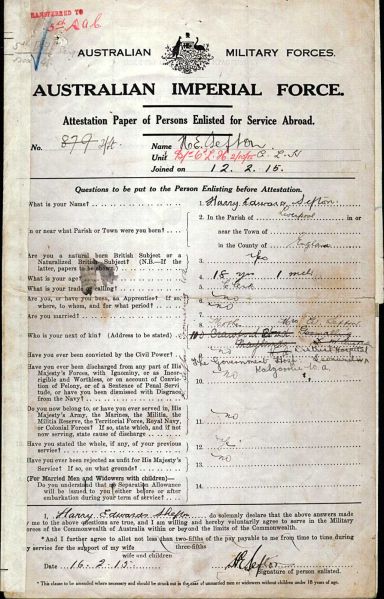 TRANSFERRED TO
AUSTRALIAN MILITARY FORCES.
AUSTRALIAN IMPERIAL FORCE.
Attestation Paper of Persons Enlisted for Service Abroad.
No. 879 Name H.E. Sefton
Unit
Joined on 12.2.15.
Questions to be put to the Person Enlisting before Attestation.
What is your Name? 1. Harry Edward Sefton
2. In the Parish of Liverpool in or
In or near what Parish or Town were you born? near the Town of
in the County of England
Are you a natural born British Subject or a
Naturalized British Subject? (N.B.—If the 3. Yes
latter, papers to be shown)
What is your age? 4. 18 yrs 1 mth
What is your trade or calling? 5. Clerk
Are you, or have you been, an Apprentice? If so,
where, to whom, and for what period? 6. no
Are you married? 7. no
Who is your next of kin? (Address to be stated) 8.
The Government
Kalgoorlie W.a
Have you ever been convicted by the Civil Power? no
Have you ever been discharged from any part of His
Majesty's Forces, with Ignominy, or as Incor-
rigible and Worthless, or on account of Convic-
tion of Felony, or of a Sentence of Penal Servi-
tude, or have you been dismissed with Disgrace
from the Navy?
Do you now belong to, or have you ever served in, His
Majesty's Army, the Marines, the Militia, the
Militia Reserve, the Territorial Force, Royal Navy,
or Colonial Forces? If so, state which, and if not
now serving, state cause of discharge
Have you stated the whole, if any, of your previous
service? 12.
Have you ever been rejected as unfit for His Majesty's
Service? If so, on what grounds? 13. no
(For Married Men and Widowers with children)—
Do you understand that no Separation Allowance
will be issued to you either before or after
embarkation during your term of service? 14.
I, Harry Edward Sefton do solemnly declare that the above answers made
by me to the above questions are true, and I am willing and hereby voluntarily agree to serve in the Military
Forces of the Commonwealth of Australia within or beyond the limits of the Commonwealth.
And I further agree to allot not less than two-fifths of the pay payable to me from time to time during
three-fifths
my service for the support of my wife
wife and children
Date 16.2.15. HESefton
Signature of person enlisted.
* This clause to be amended where necessary and should be struck out in the case of unmarried men or widowers without children under 18 years of age.